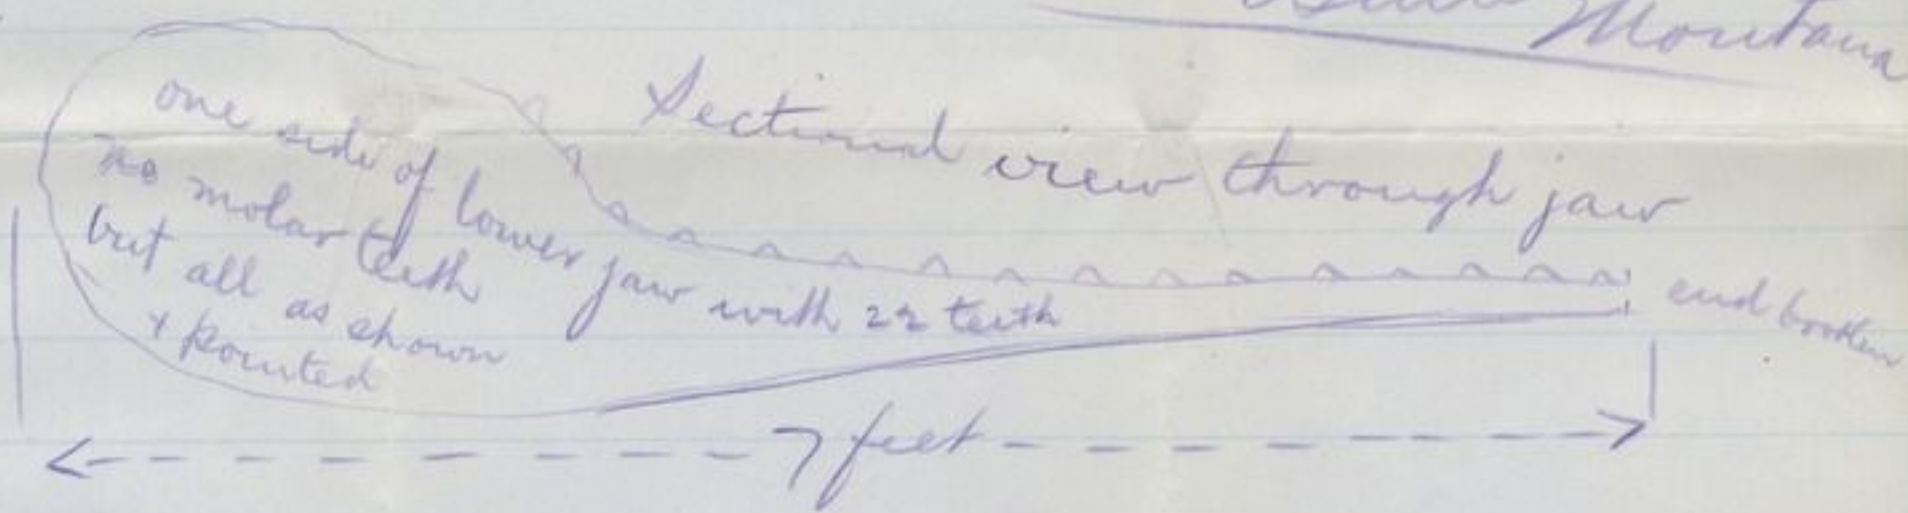 Montana
Sectional view through jaw
one side of lower jaw with 22 teeth
no molar teeth
but all as shown
+ pointed
end broken
7 feet